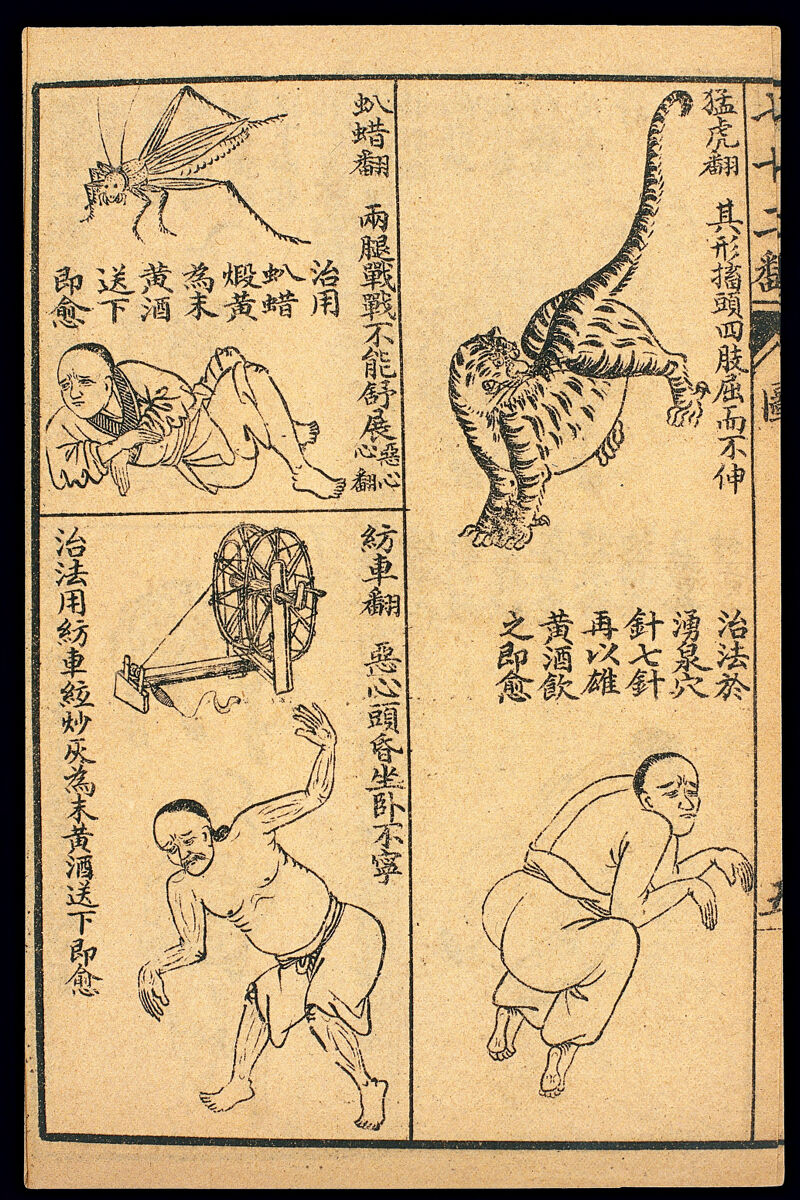 七十二番
圖
猛虎翻 其形搐頭四肢屈而不伸
治法於
湧泉穴
針七針
再以雄
黃酒飲
之即愈
𧉅蜡翻 兩腿戰戰不能舒展惡心心翻
治用
𧉅蜡
煅黃
為末
黃酒
送下
即愈
紡車翻 惡心頭昏坐卧不寧
治法用紡車絃炒灰為末黃酒送下即愈